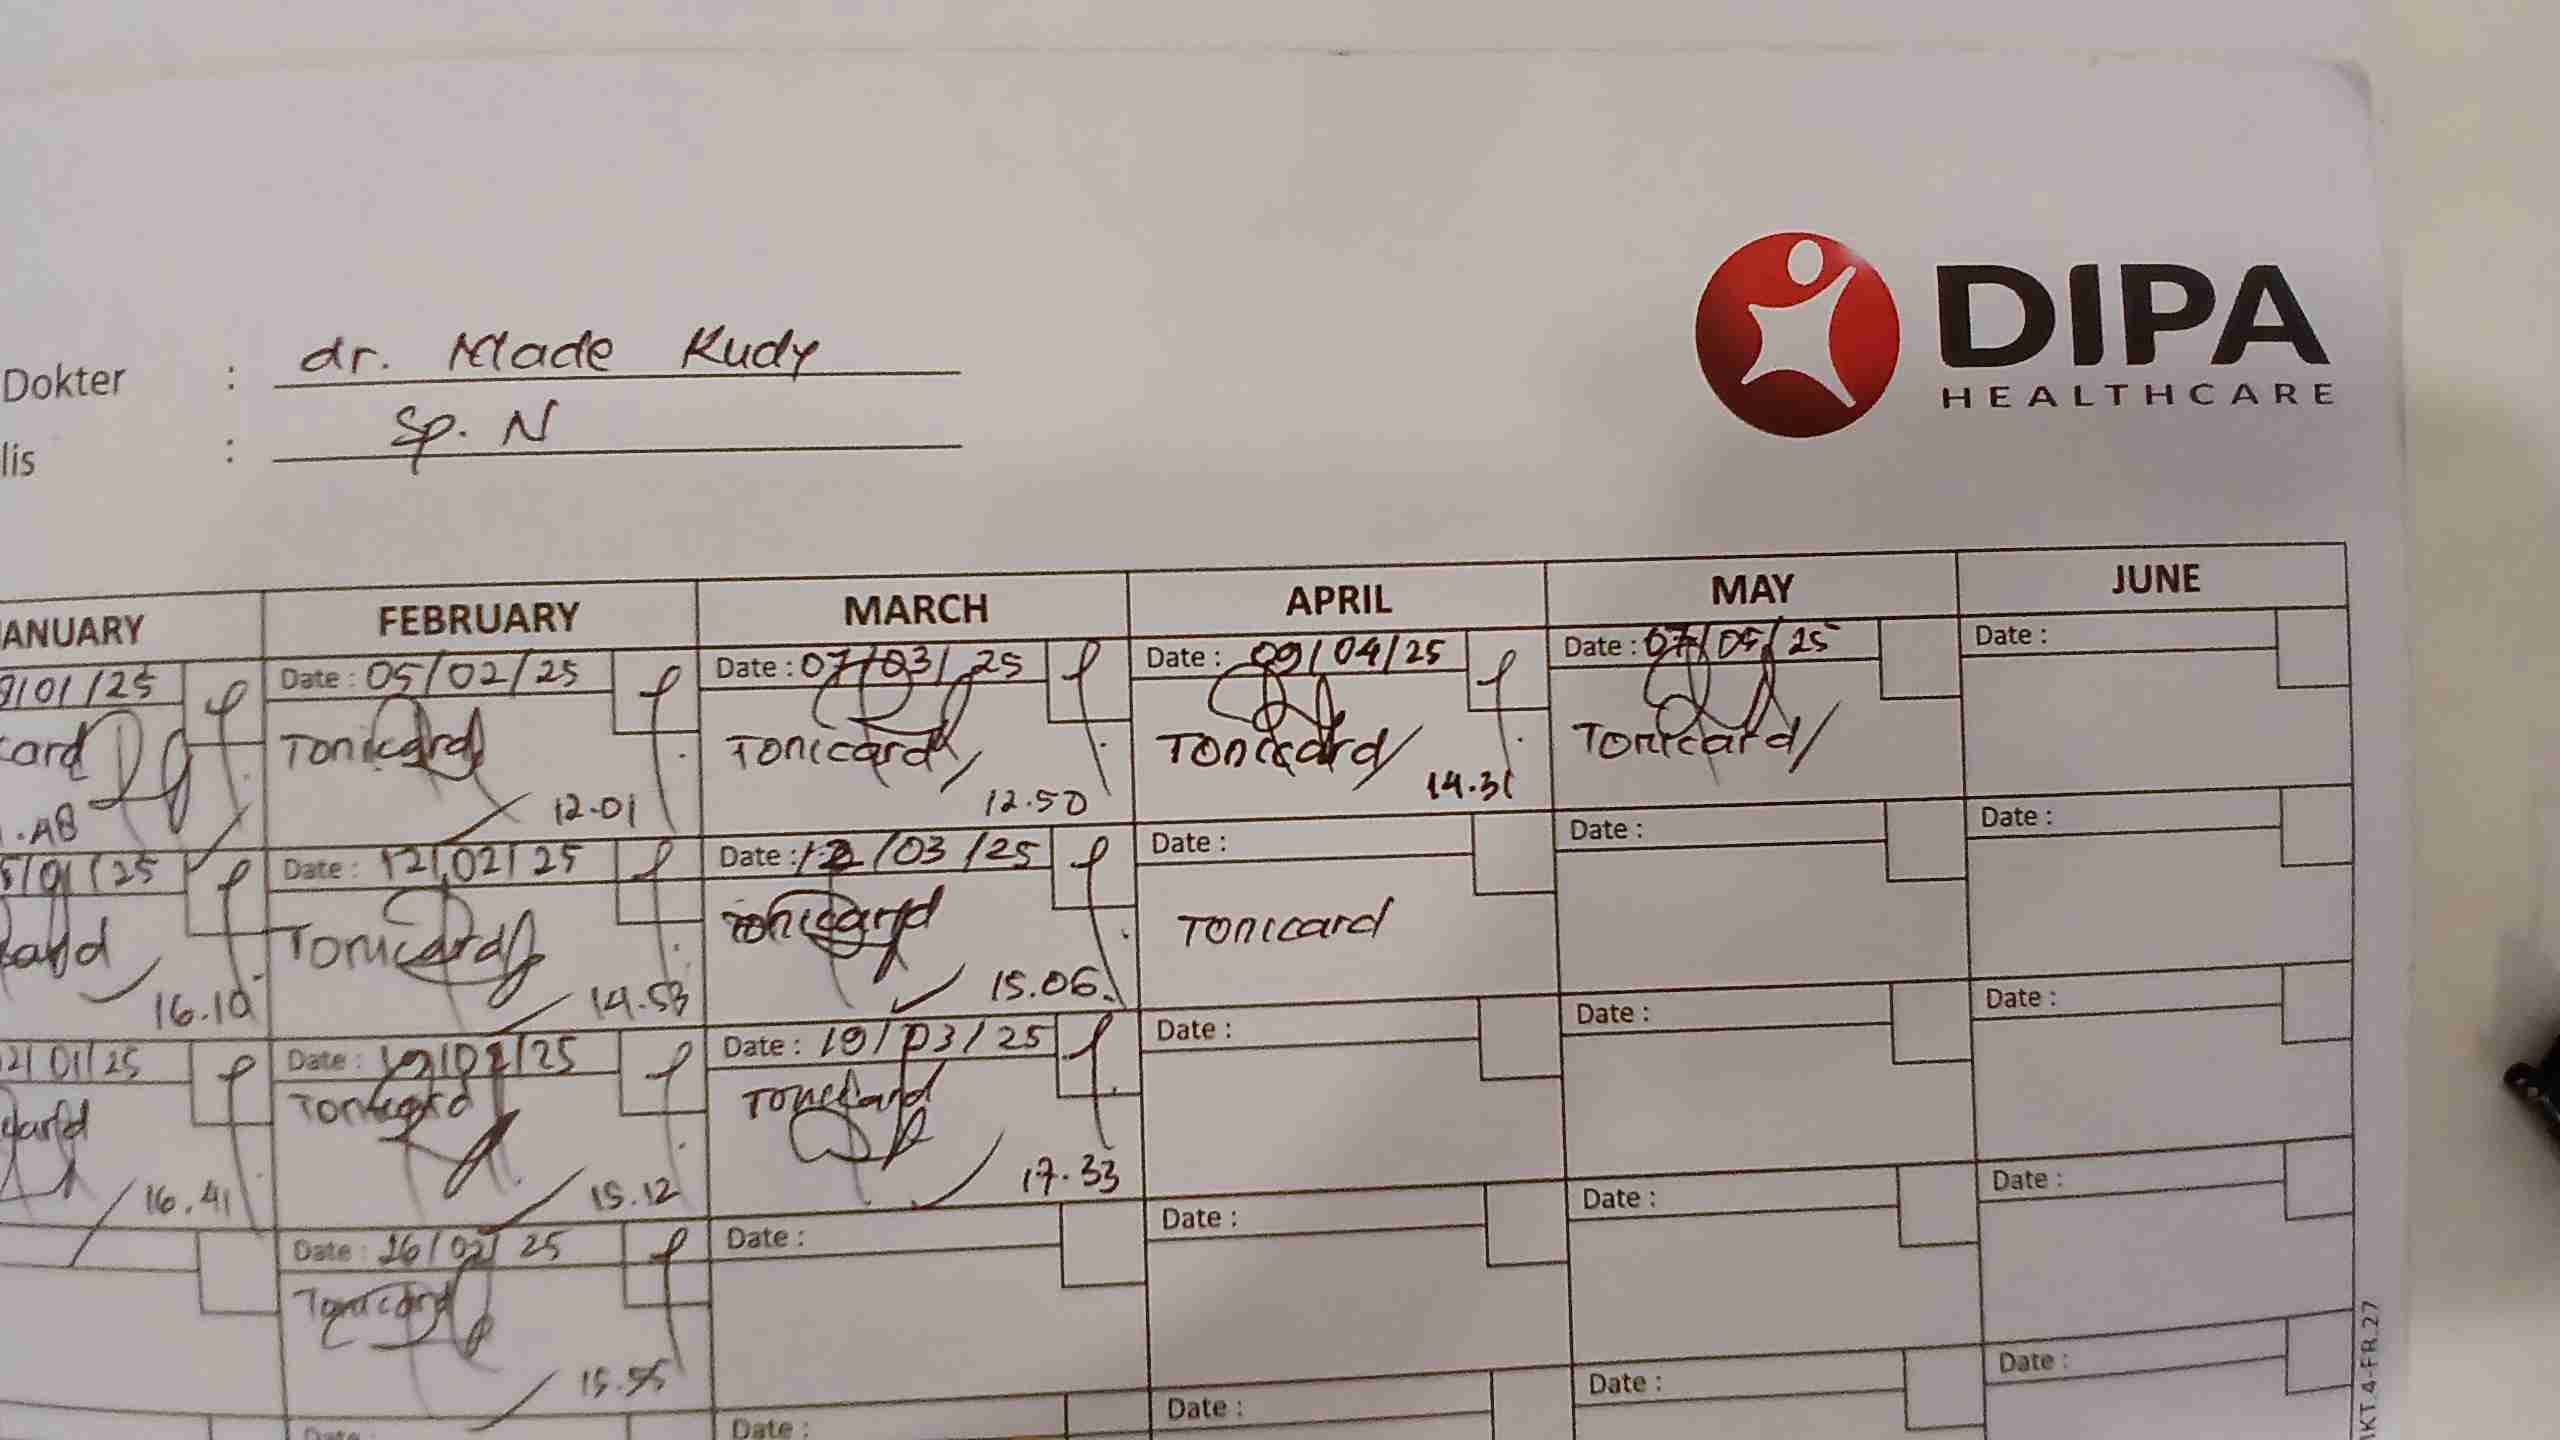 DIPA
HEALTHCARE
Dokter : dr. Made Rudy
lis : Sp. N
ANUARY FEBRUARY MARCH APRIL MAY JUNE
/01/25 Date : 05/02/25 Date : 07/03/25 Date : 09/04/25 Date : 07/05/25 Date :
card Tonicard Tonicard Tonicard Tonicard
12.01 12.50 14.31
/01/25 Date : 12/02/25 Date : 12/03/25 Date : Date : Date :
card Tonicard Tonicard Tonicard
16.10 14.53 15.06
2/01/25 Date : 19/02/25 Date : 19/03/25 Date : Date : Date :
card Tonicard Tonicard
16.41 15.12 17.33
Date : 26/02/25 Date : Date : Date : Date :
Tonicard
15.55
Date : Date : Date : Date : Date :
KT.4-FR.27